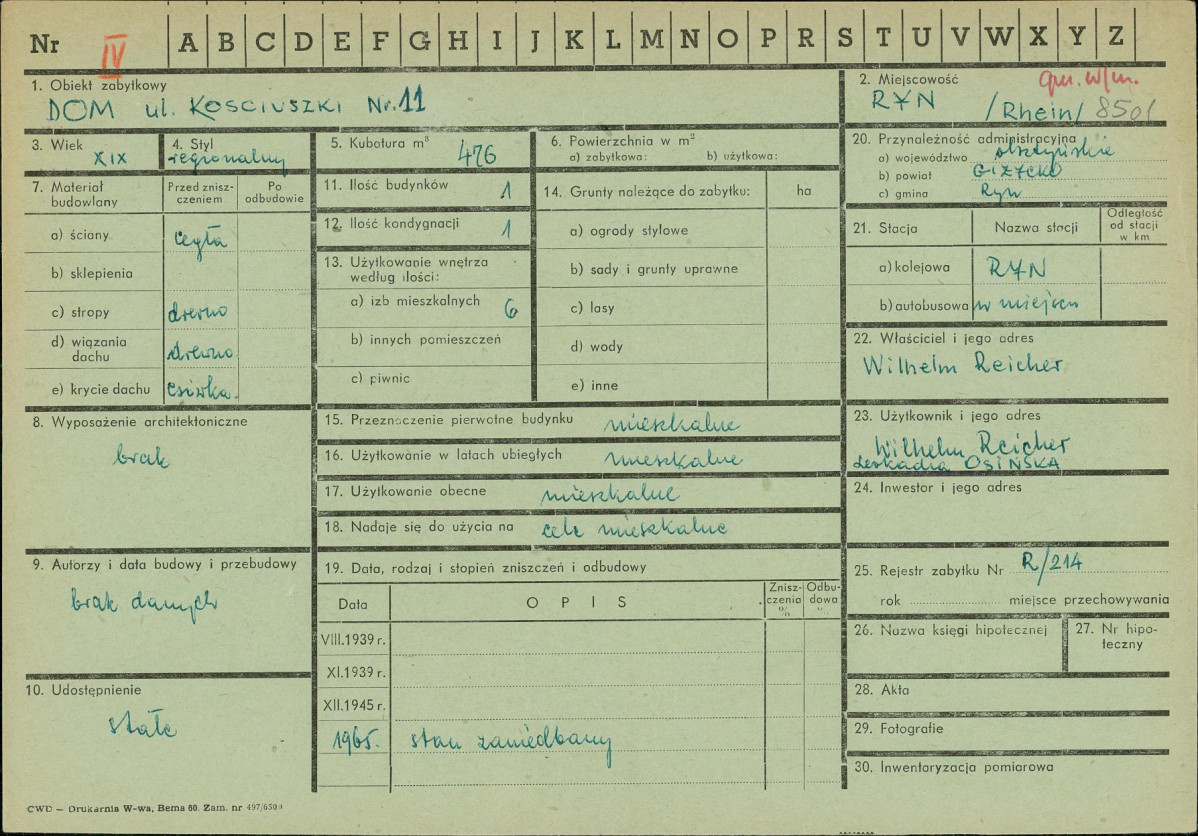 Nr IV A B C D E F G H I J K L M N O P R S T U V W X Y Z
1. Obiekt zabytkowy
DOM ul. KOSCIUSZKI Nr. 11
2. Miejscowość
RYN /Rhein/ 850/
3. Wiek
XIX
4. Styl
regionalny
5. Kubatura m³
476
6. Powierzchnia w m²
a) zabytkowa: b) użytkowa:
7. Materiał budowlany
Przed zniszczeniem
Po odbudowie
a) ściany cegła
b) sklepienia
c) stropy drewno
d) wiązania dachu drewno
e) krycie dachu
8. Wyposażenie architektoniczne
brak
9. Autorzy i data budowy i przebudowy
brak danych
10. Udostępnienie
stałe
11. Ilość budynków 1
12. Ilość kondygnacji 1
13. Użytkowanie wnętrza
według ilości:
a) izb mieszkalnych 6
b) innych pomieszczeń
c) piwnic
14. Grunty należące do zabytku: ha
a) ogrody stylowe
b) sady i grunty uprawne
c) lasy
d) wody
e) inne
15. Przeznaczenie pierwotne budynku mieszkalne
16. Użytkowanie w latach ubiegłych mieszkalne
17. Użytkowanie obecne mieszkalne
18. Nadaje się do użycia na cele mieszkalne
19. Data, rodzaj i stopień zniszczeń i odbudowy
Data OPIS Zniszczenia % Odbudowa %
VIII.1939 r.
XI.1939 r.
XII.1945 r.
1965. stan zaniedbany
20. Przynależność administracyjna
a) województwo olsztyńskie
b) powiat GIŻYCKO
c) gmina Ryn
21. Stacja Nazwa stacji Odległość od stacji w km
a) kolejowa RYN
b) autobusowa w miejscu
22. Właściciel i jego adres
Wilhelm Reicher
23. Użytkownik i jego adres
Wilhelm Reicher
OSIŃSKA
24. Inwestor i jego adres
25. Rejestr zabytku Nr R/214
rok miejsce przechowywania
26. Nazwa księgi hipotecznej
27. Nr hipoteczny
28. Akta
29. Fotografie
30. Inwentaryzacja pomiarowa
CWD – Drukarnia W-wa, Bema 60. Zam. nr 497/6500